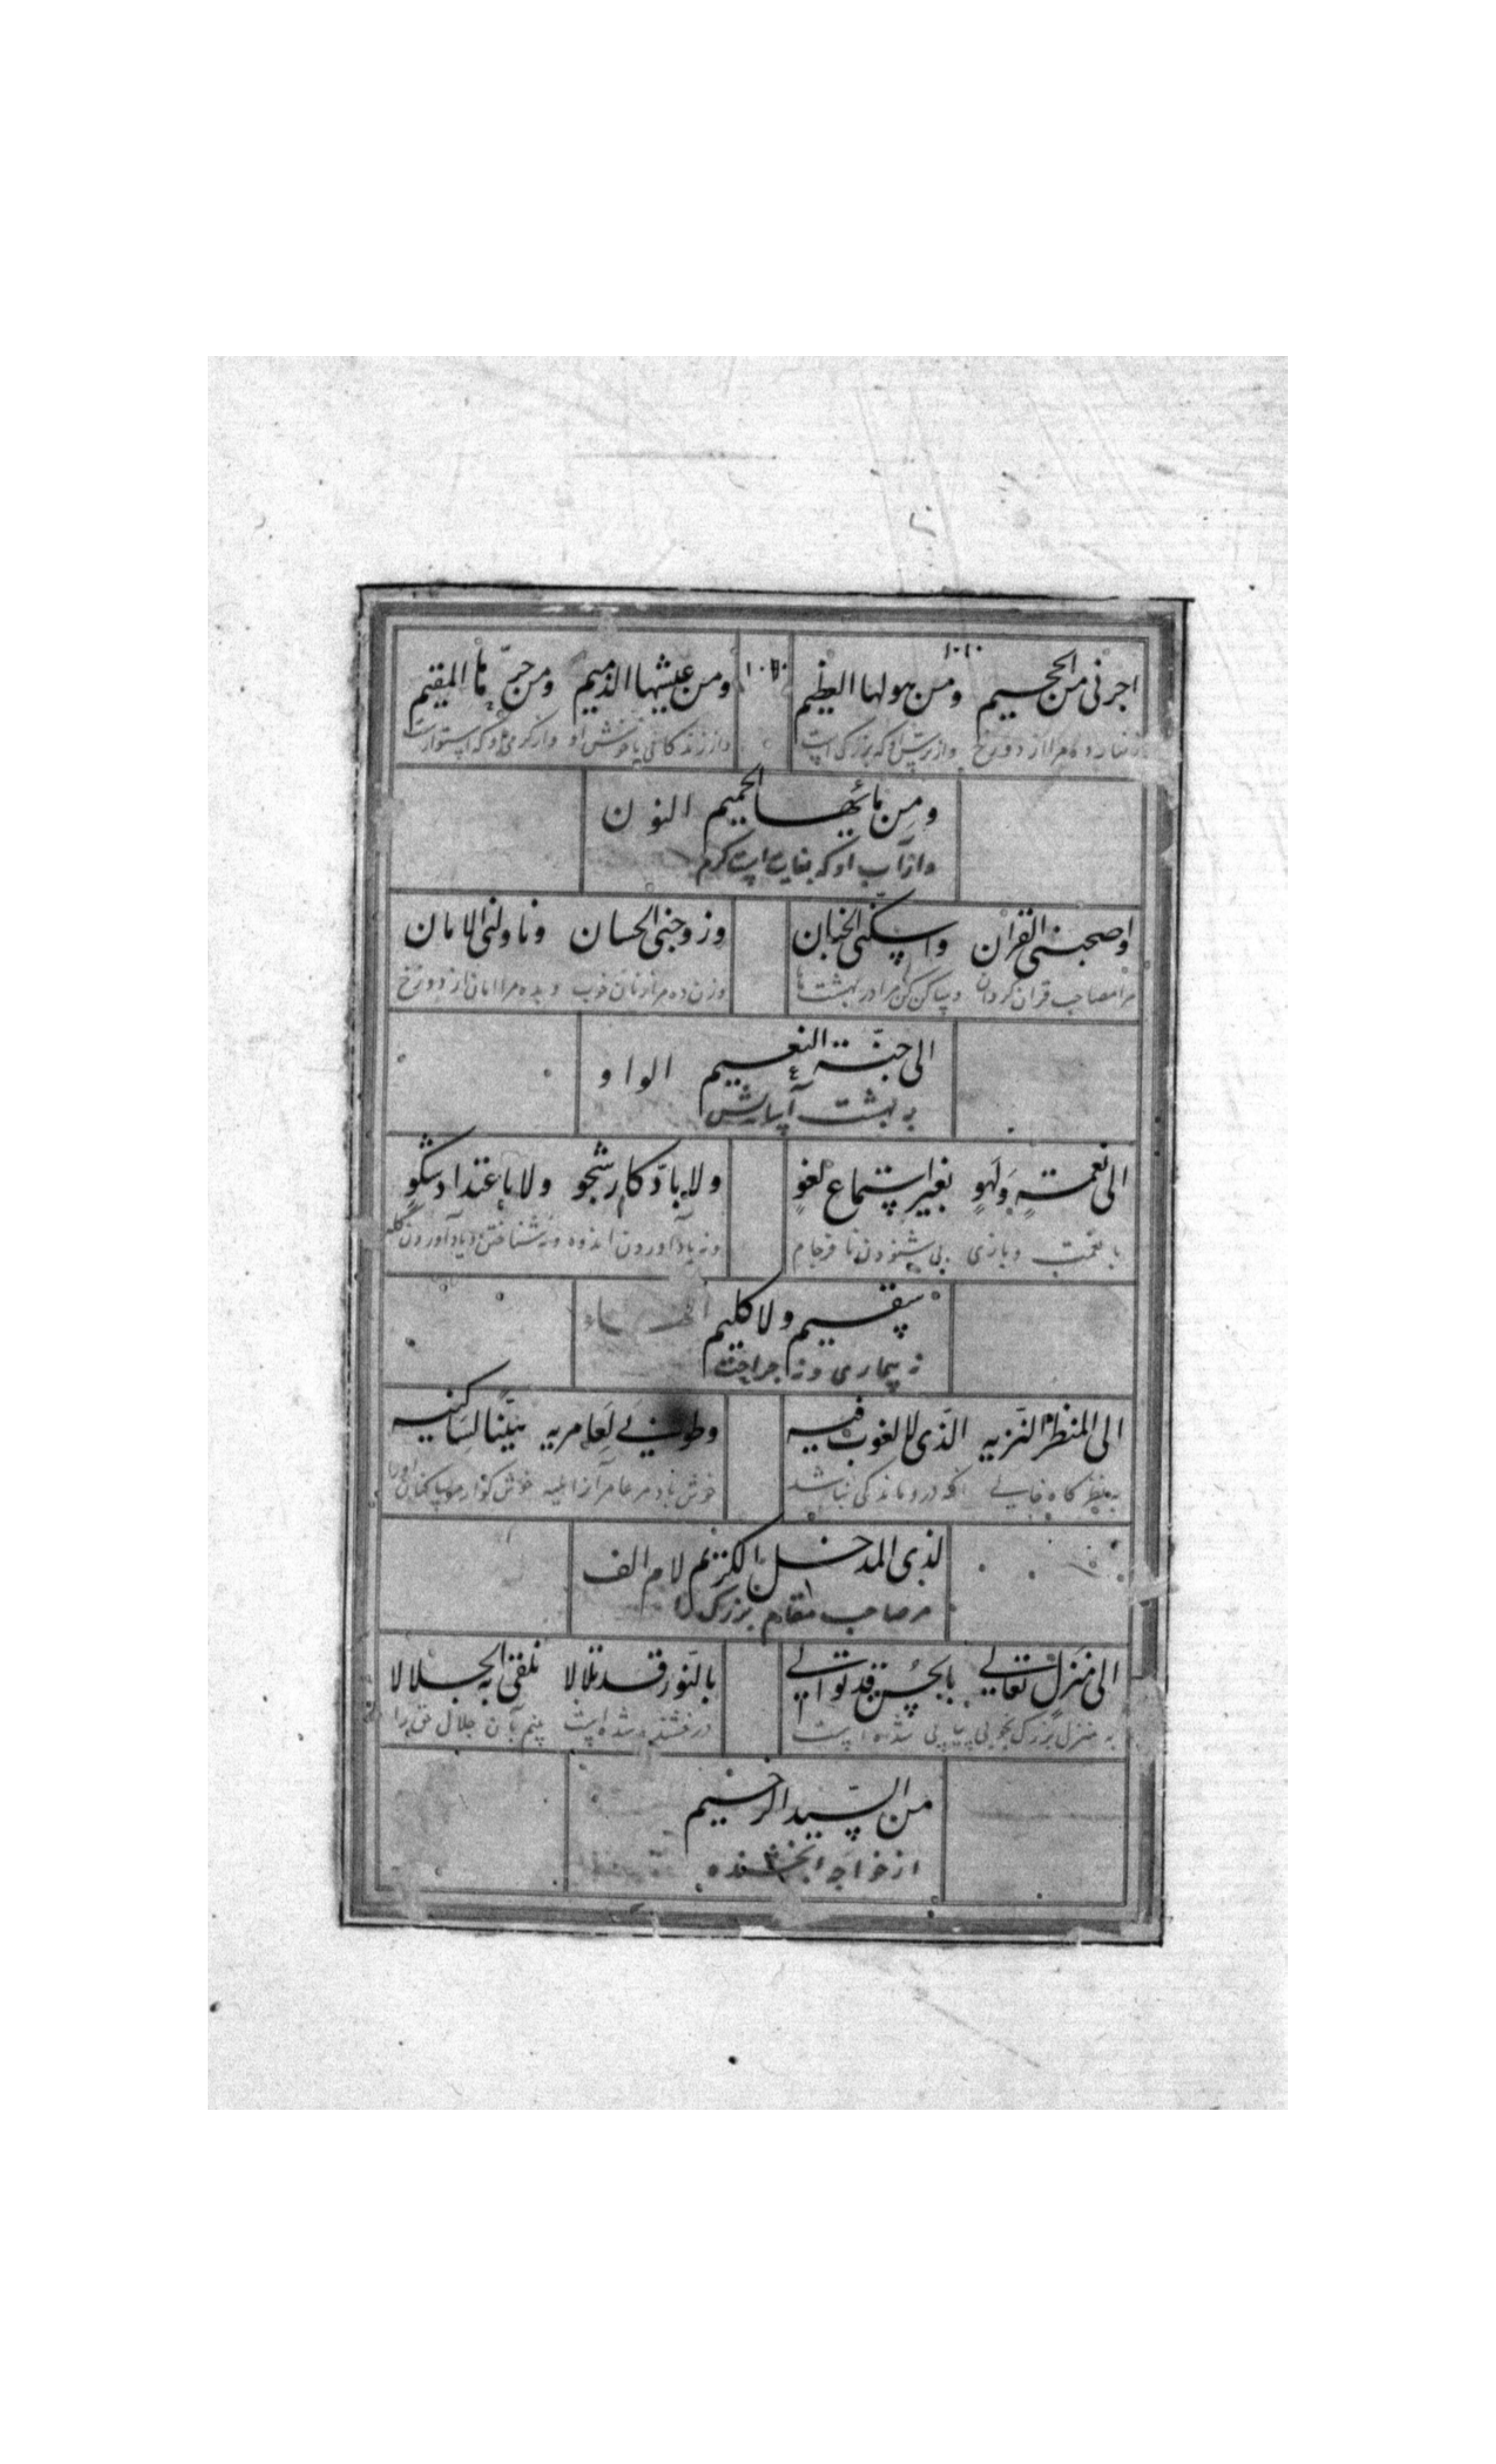 اجرنی من الجحیم ومن هولها العظیم ومن عیشها الذمیم ومن حرّها المقیم
زنهار ده مرا از دوزخ واز ترس او که بزرگ است واز زندگانی ناخوش او واز گرمی او که استوارست
ومن مائها الحمیم النون
واز آب او که بغایت است گرم
واصحبنی القران واسکنی الجنان وزوجنی الحسان وناولنی الامان
مرا مصاحب قران گردان وساکن کن مرا در بهشت ها وزن ده مرا زنان خوب وبده مرا امان از دوزخ
الی جنّة النعیم الواو
به بهشت آسایش
الی نعمةٍ ولهوٍ بغیر استماع لغوٍ ولا بادّکار شجو ولا باعتداد شکوٍ
با نعمت وبازی بی شنودن نافرجام ونه یاد آوردن اندوه ونه شناختن ویاد آوردن گله
سقیم ولا کلیم الهاء
نه بیماری ونه جراحت
الی المنظر النزیه الذی لا لغوب فیه وطوبی لعامریه بیّنا لساکنیه
خوش باد مر عامر آن را
لذی المدخل الکریم لام الف
مر صاحب مقام بزرگ را
الی منزل تعالی بالحسن قد توالی بالنور قد تلالا نلقی به الجلالا
به منزل بزرگ بخوبی پیاپی شده است درخشنده شده است بینم بآن جلال حق را
من السیّد الرحیم
از خواجه بخشنده